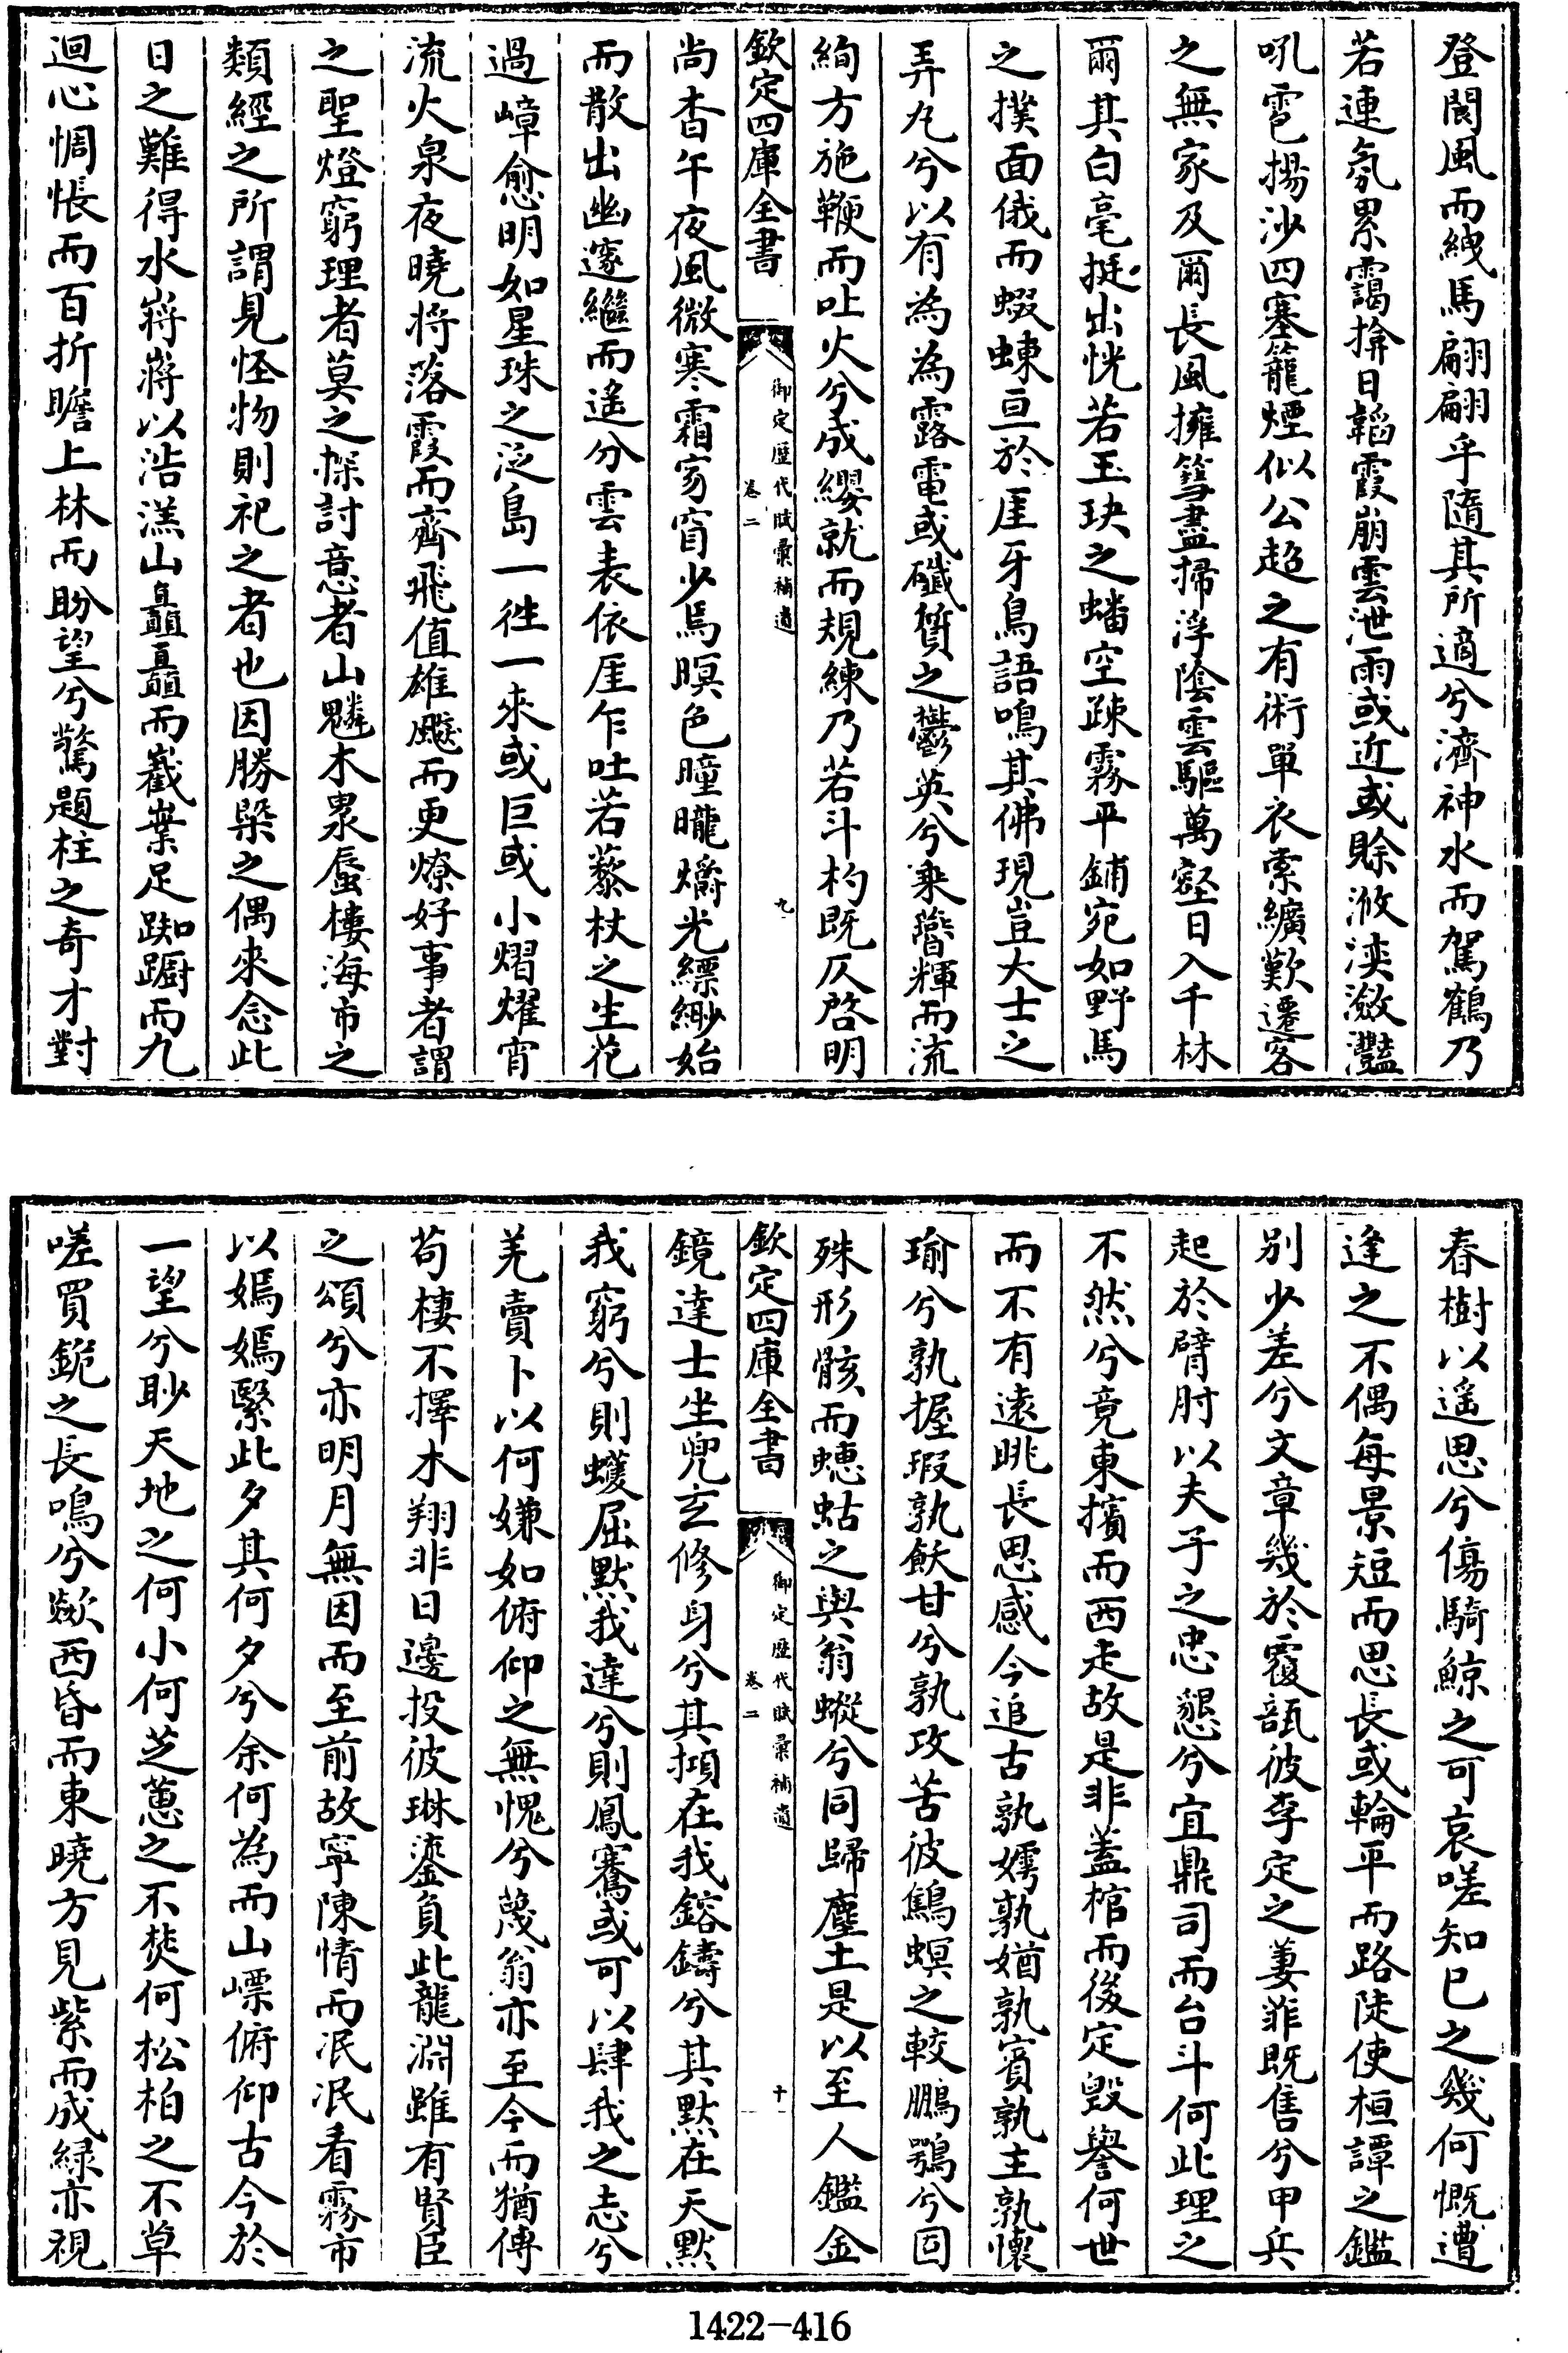 登閬風而緤馬翩翩乎隨其所適兮濟神水而駕鶴乃
若連氛累靄揜日韜霞崩雲泄雨或近或賒滧渂瀲灩
吼雹揚沙四塞籠煙似公超之有術單衣索纊歎遷客
之無家及爾長風擁篲盡掃浮陰雲驅萬壑日入千林
爾其白毫挺出恍若玉玦之蟠空疎霧平鋪宛如野馬
之撲面俄而蝃蝀亘於厓牙鳥語鳴其佛現豈大士之
弄丸兮以有為為露電或殲質之鬱英兮乗簪輝而流
絢方施鞭而吐火兮成纓就而規練乃若斗杓既仄啓明
欽定四庫全書
御定歷代賦彙補遺
卷二
九
尚杳午夜風微寒霜穷窅少焉暝色曈曨爝光縹緲始
而散出幽邃繼而遙分雲表依厓乍吐若藜杖之生花
過嶂愈明如星珠之泛島一徃一來或巨或小熠燿宵
流火泉夜曉将落霞而齊飛值雄飈而更燎好事者謂
之聖燈窮理者莫之探討意者山魑木累蜃樓海市之
類經之所謂見怪物則祀之者也因勝槩之偶來念此
日之難得水㟉㟉以浩漾山矗矗而嶻嶪足踟蹰而九
迴心惆悵而百折瞻上林而盼望兮驚題柱之奇才對
春樹以遥思兮傷騎鯨之可哀嗟知已之幾何慨遭
逢之不偶每景短而思長或輪平而路陡使桓譚之鑑
别少差兮文章幾於覆瓿彼李定之萋菲既售兮甲兵
起於臂肘以夫子之忠懇兮宜鼎司而台斗何此理之
不然兮竟東擯而西走故是非蓋棺而後定毁譽何世
而不有遠眺長思感今追古孰嫮孰媨孰賓孰主孰懷
瑜兮孰握瑕孰飫甘兮孰攻苦彼鷦螟之較鵬鶚兮回
殊形骸而蟪蛄之與翁蹤兮同歸塵土是以至人鑑金
欽定四庫全書
御定歷代賦彙補遺
卷二
十
鏡達士坐兜玄修身兮其損在我鎔鑄兮其默在天默
我窮兮則蠖屈默我達兮則鳳騫或可以肆我之志兮
羌賣卜以何嫌如俯仰之無愧兮蔑翁亦至今而猶傳
苟棲不擇木翔非日邊投彼琳鎏負此龍淵雖有賢臣
之頌兮亦明月無因而至前故寧陳情而泯泯看霧市
以嫣嫣緊此夕其何夕兮余何為而山嶫俯仰古今於
一望兮眇天地之何小何芝蕙之不焚何松柏之不草
嗟買鈮之長鳴兮歘西昏而東曉方見紫而成緑亦視
1422-416